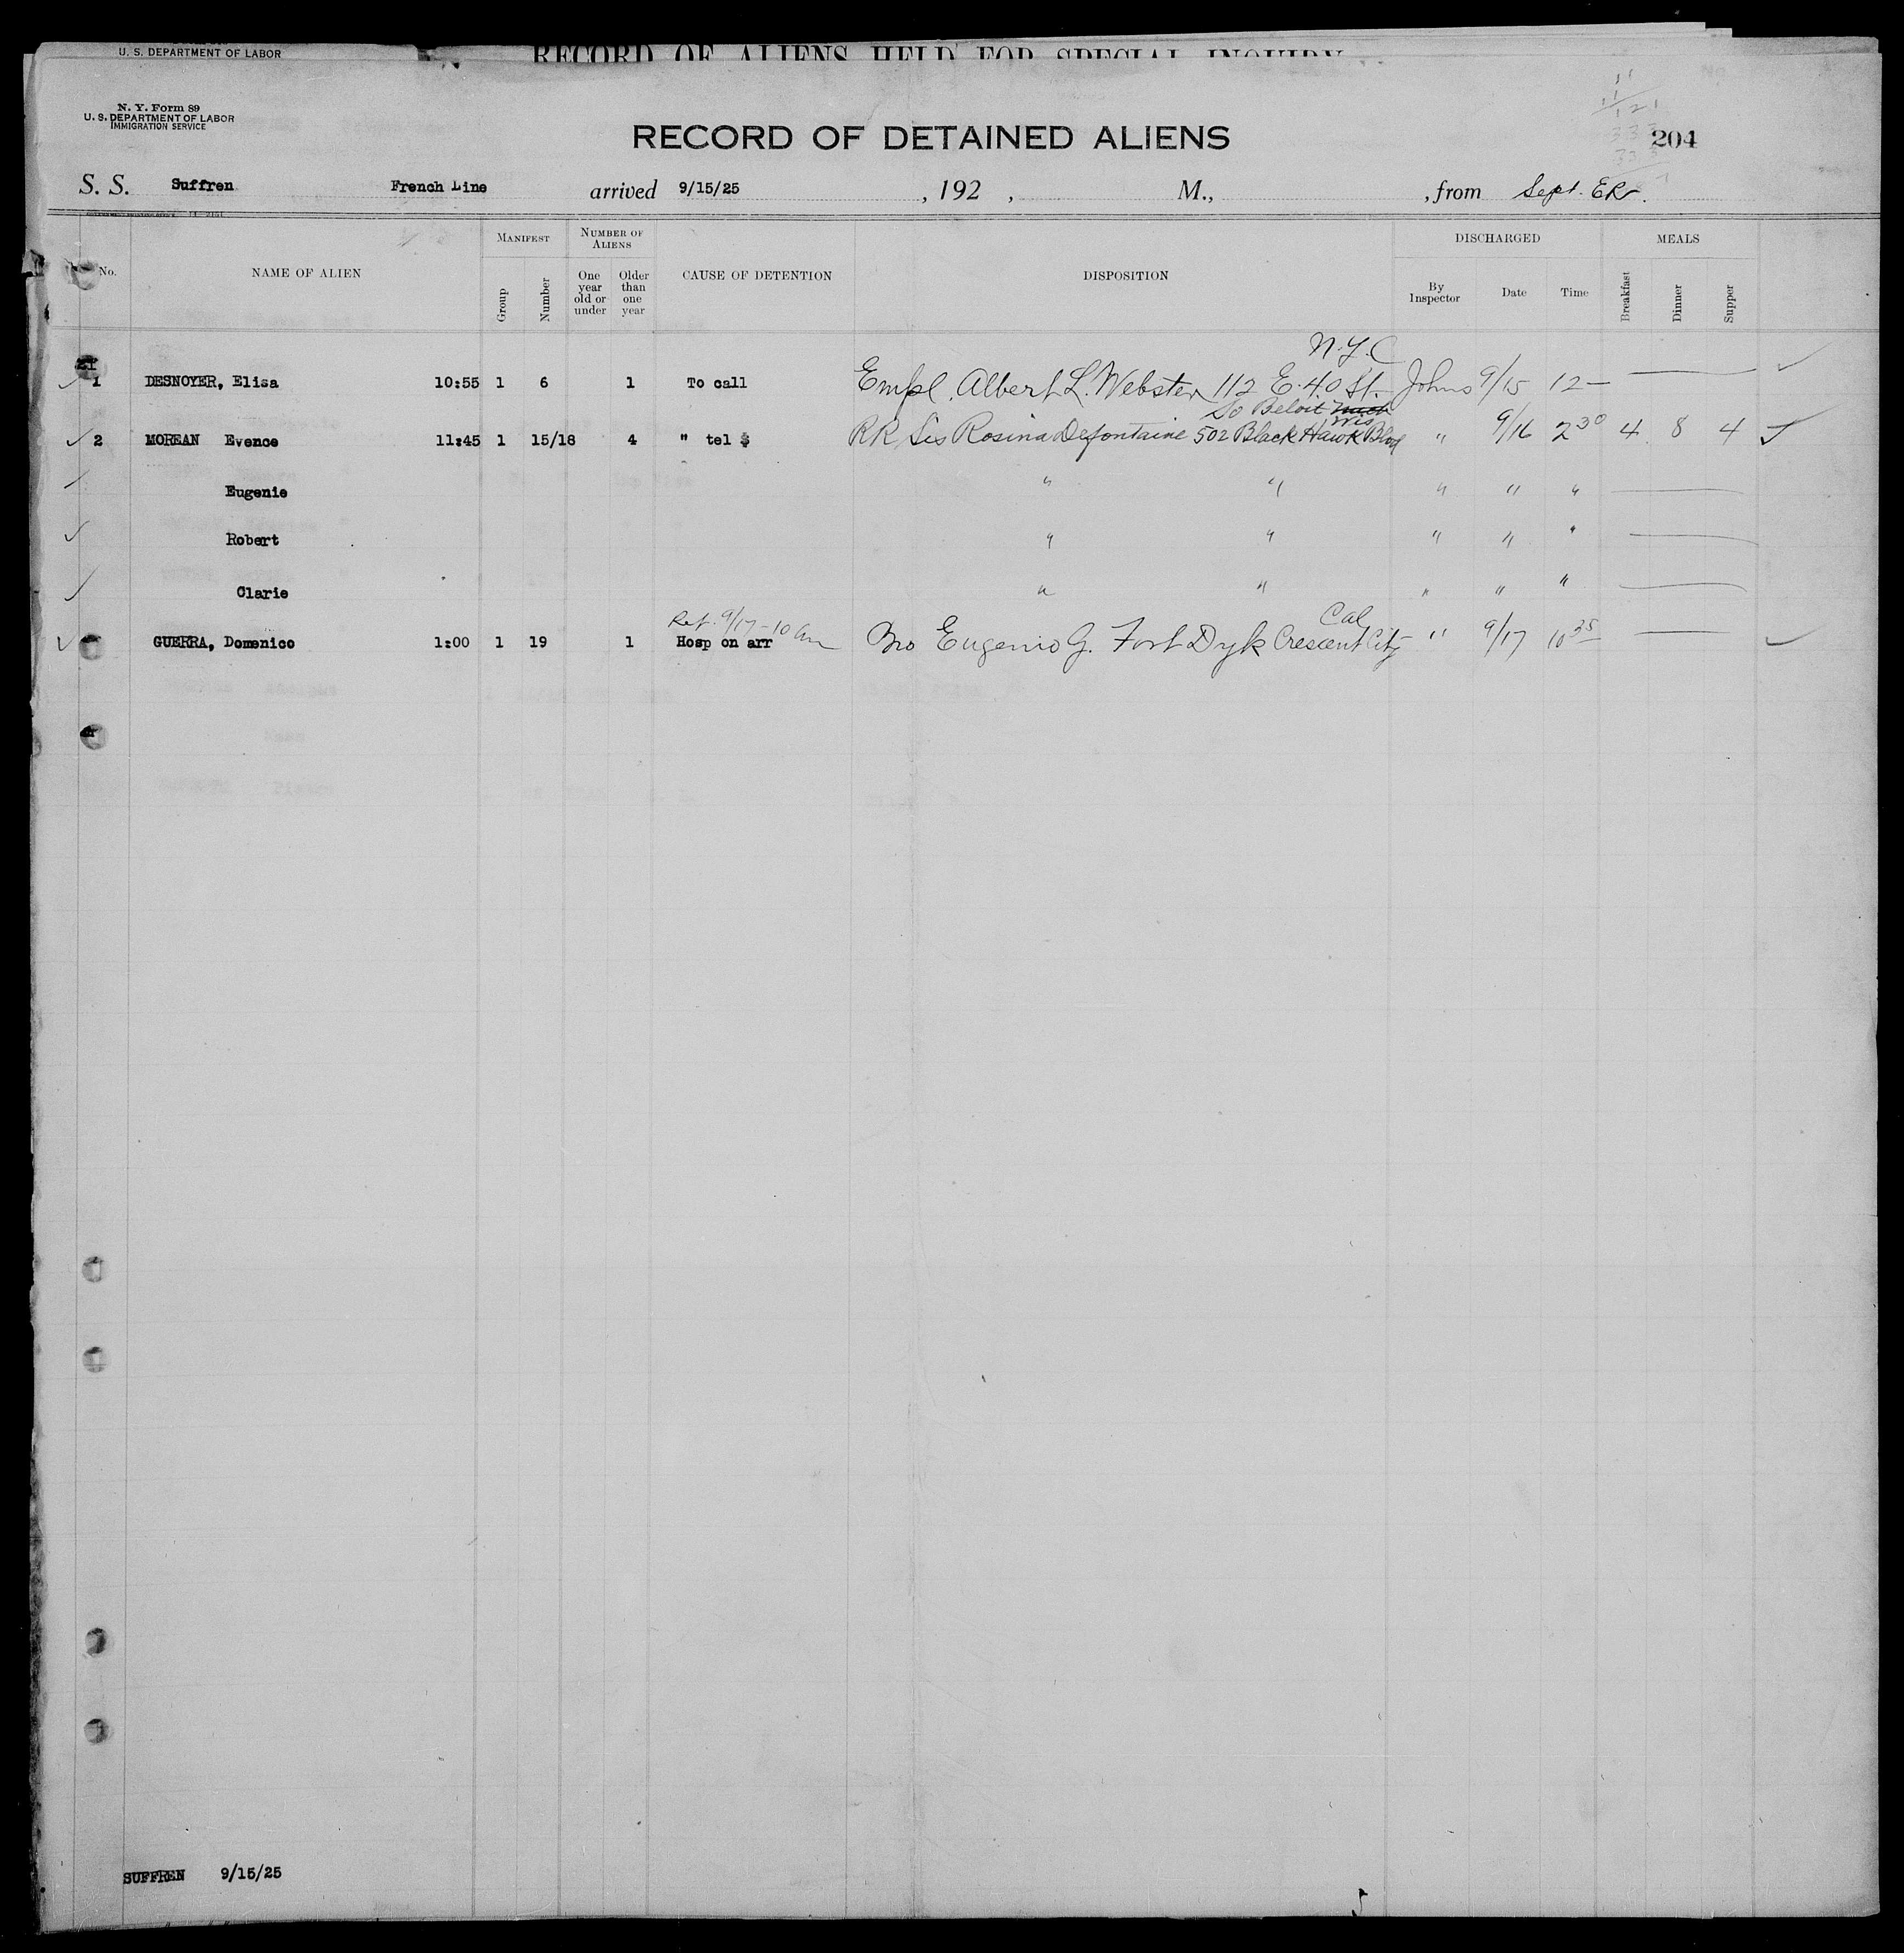 U. S. DEPARTMENT OF LABOR
RECORD OF ALIENS HELD FOR SPECIAL INQUIRY
N. Y. Form 89
U. S. DEPARTMENT OF LABOR
IMMIGRATION SERVICE
RECORD OF DETAINED ALIENS
204
S. S. Suffren French Line arrived 9/15/25 , 192 , M., , from Sept. ER.
No. NAME OF ALIEN MANIFEST Group Number NUMBER OF ALIENS One year old or under Older than one year CAUSE OF DETENTION DISPOSITION DISCHARGED By Inspector Date Time MEALS Breakfast Dinner Supper
N.Y.C
1 DESNOYER, Elisa 10:55 1 6 1 To call Empl. Albert L. Webster 112 E. 40 St. Johns 9/15 12—
So Beloit Mich
Wis
2 MOREAN Evence 11:45 1 15/18 4 " tel $ RR Sis Rosina Defontaine 502 Black Hawk Blvd " 9/16 2 30 4 8 4
Eugenie " " " " "
Robert " " " " "
Clarie " " " " "
Ret. 9/17-10 am Cal
GUERRA, Domenico 1:00 1 19 1 Hosp on arr Bro Eugenio G. Fort Dyk Crescent City " 9/17 10 35
SUFFREN 9/15/25